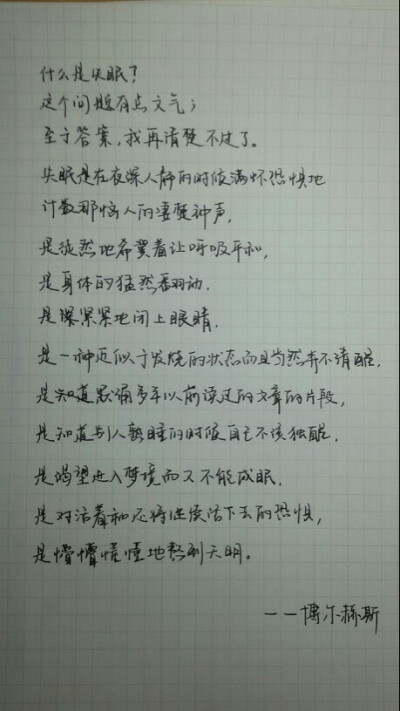 什么是失眠？
这个问题有点文气；
至于答案，我再清楚不过了。
失眠是在夜深人静的时候满怀恐惧地
计数那恼人的凄楚钟声，
是徒然地希冀着让呼吸平和，
是身体的猛然翻动，
是紧紧地闭上眼睛，
是一种近似于发烧的状态而且当然并不清醒，
是知道默诵多年以前读过的文章的片段，
是知道别人熟睡的时候自己不该独醒，
是渴望进入梦境而又不能成眠，
是对活着和还将继续活下去的恐惧，
是懵懵懂懂地熬到天明。
——博尔赫斯